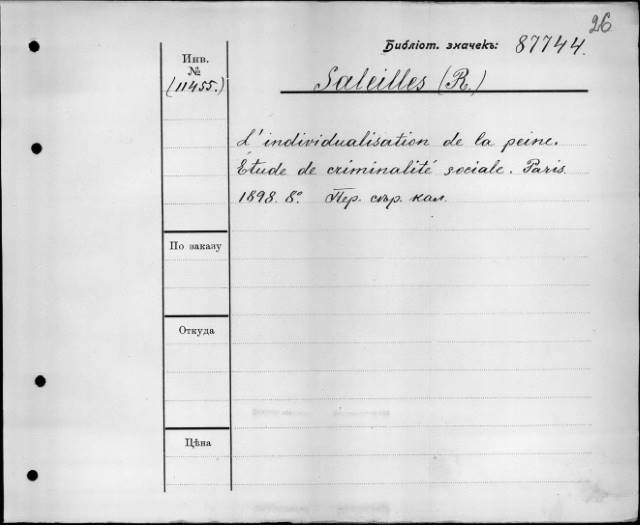 26
Библіот. значекъ: 87744.
Инв.
№
(11455.)
Saleilles (R.)
L'individualisation de la peine.
Étude de criminalité sociale. Paris
1898. 8º. Пер. сѣр. кал.
По заказу
Откуда
Цѣна